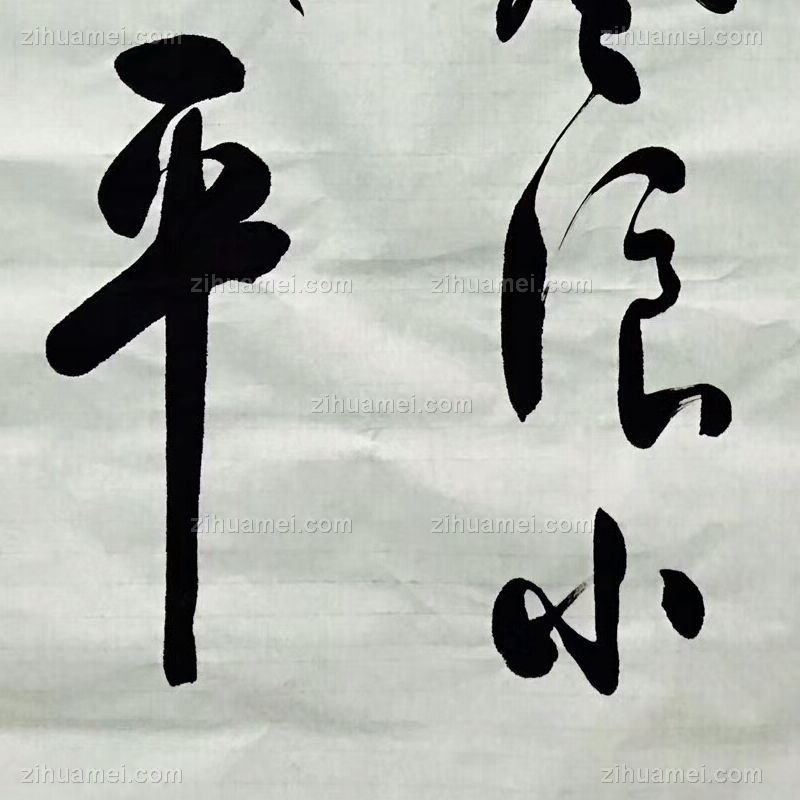 zihuamei.com zihuamei.com
小
平
zihuamei.com zihuamei.com
zihuamei.com
zihuamei.com zihuamei.com
zihuamei.com zihuamei.com